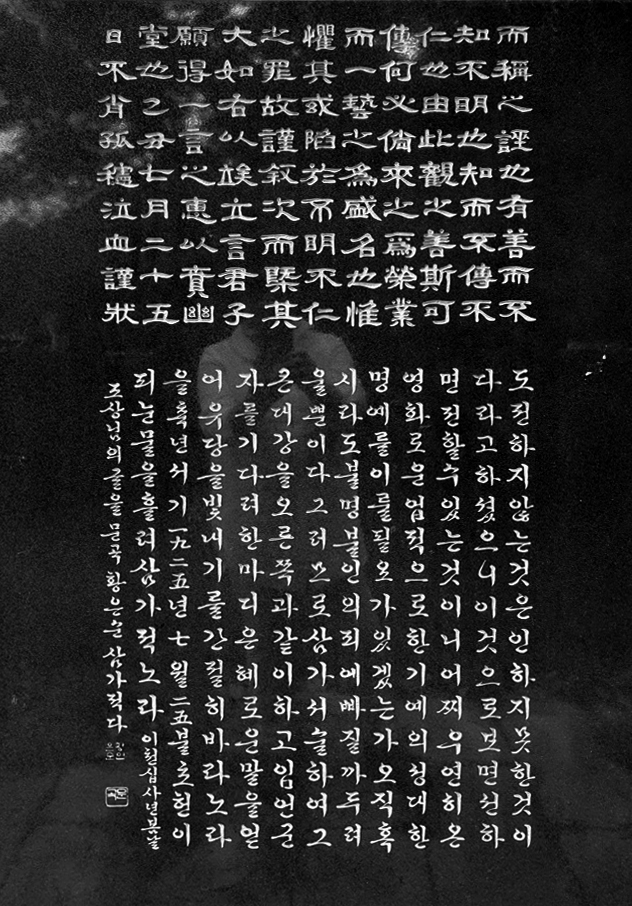 而稱之誣也有善而不
知不明也知而不傳不
仁也由此觀之善斯可
傳何必倘來之爲榮業
而一藝之爲盛名也惟
懼其或陷於不明不仁
之罪故謹叙次而槩其
大如右以竢立言君子
願得一言之惠以賁幽
堂也乙丑七月二十五
日不肖孤泣血謹狀
도전하지않는것은인하지못한것이
다라고하셨으니이것으로보면선하
면전할수있는것이니어찌우연히온
영화로운업적으로한기예의성대한
명예를이를필요가있겠는가오직혹
시라도불명불인의죄에빠질까두려
울뿐이다그러므로삼가서술하여그
큰대강을오른쪽과같이하고입언군
자를기다려한마디은혜로운말을얻
어유당을빛내기를간절히바라노라
을축년서기一九二五년七월二五불초헌이
피눈물을흘려삼가적노라 이천십사년봄날
조상님의글을문곡황은순삼가적다